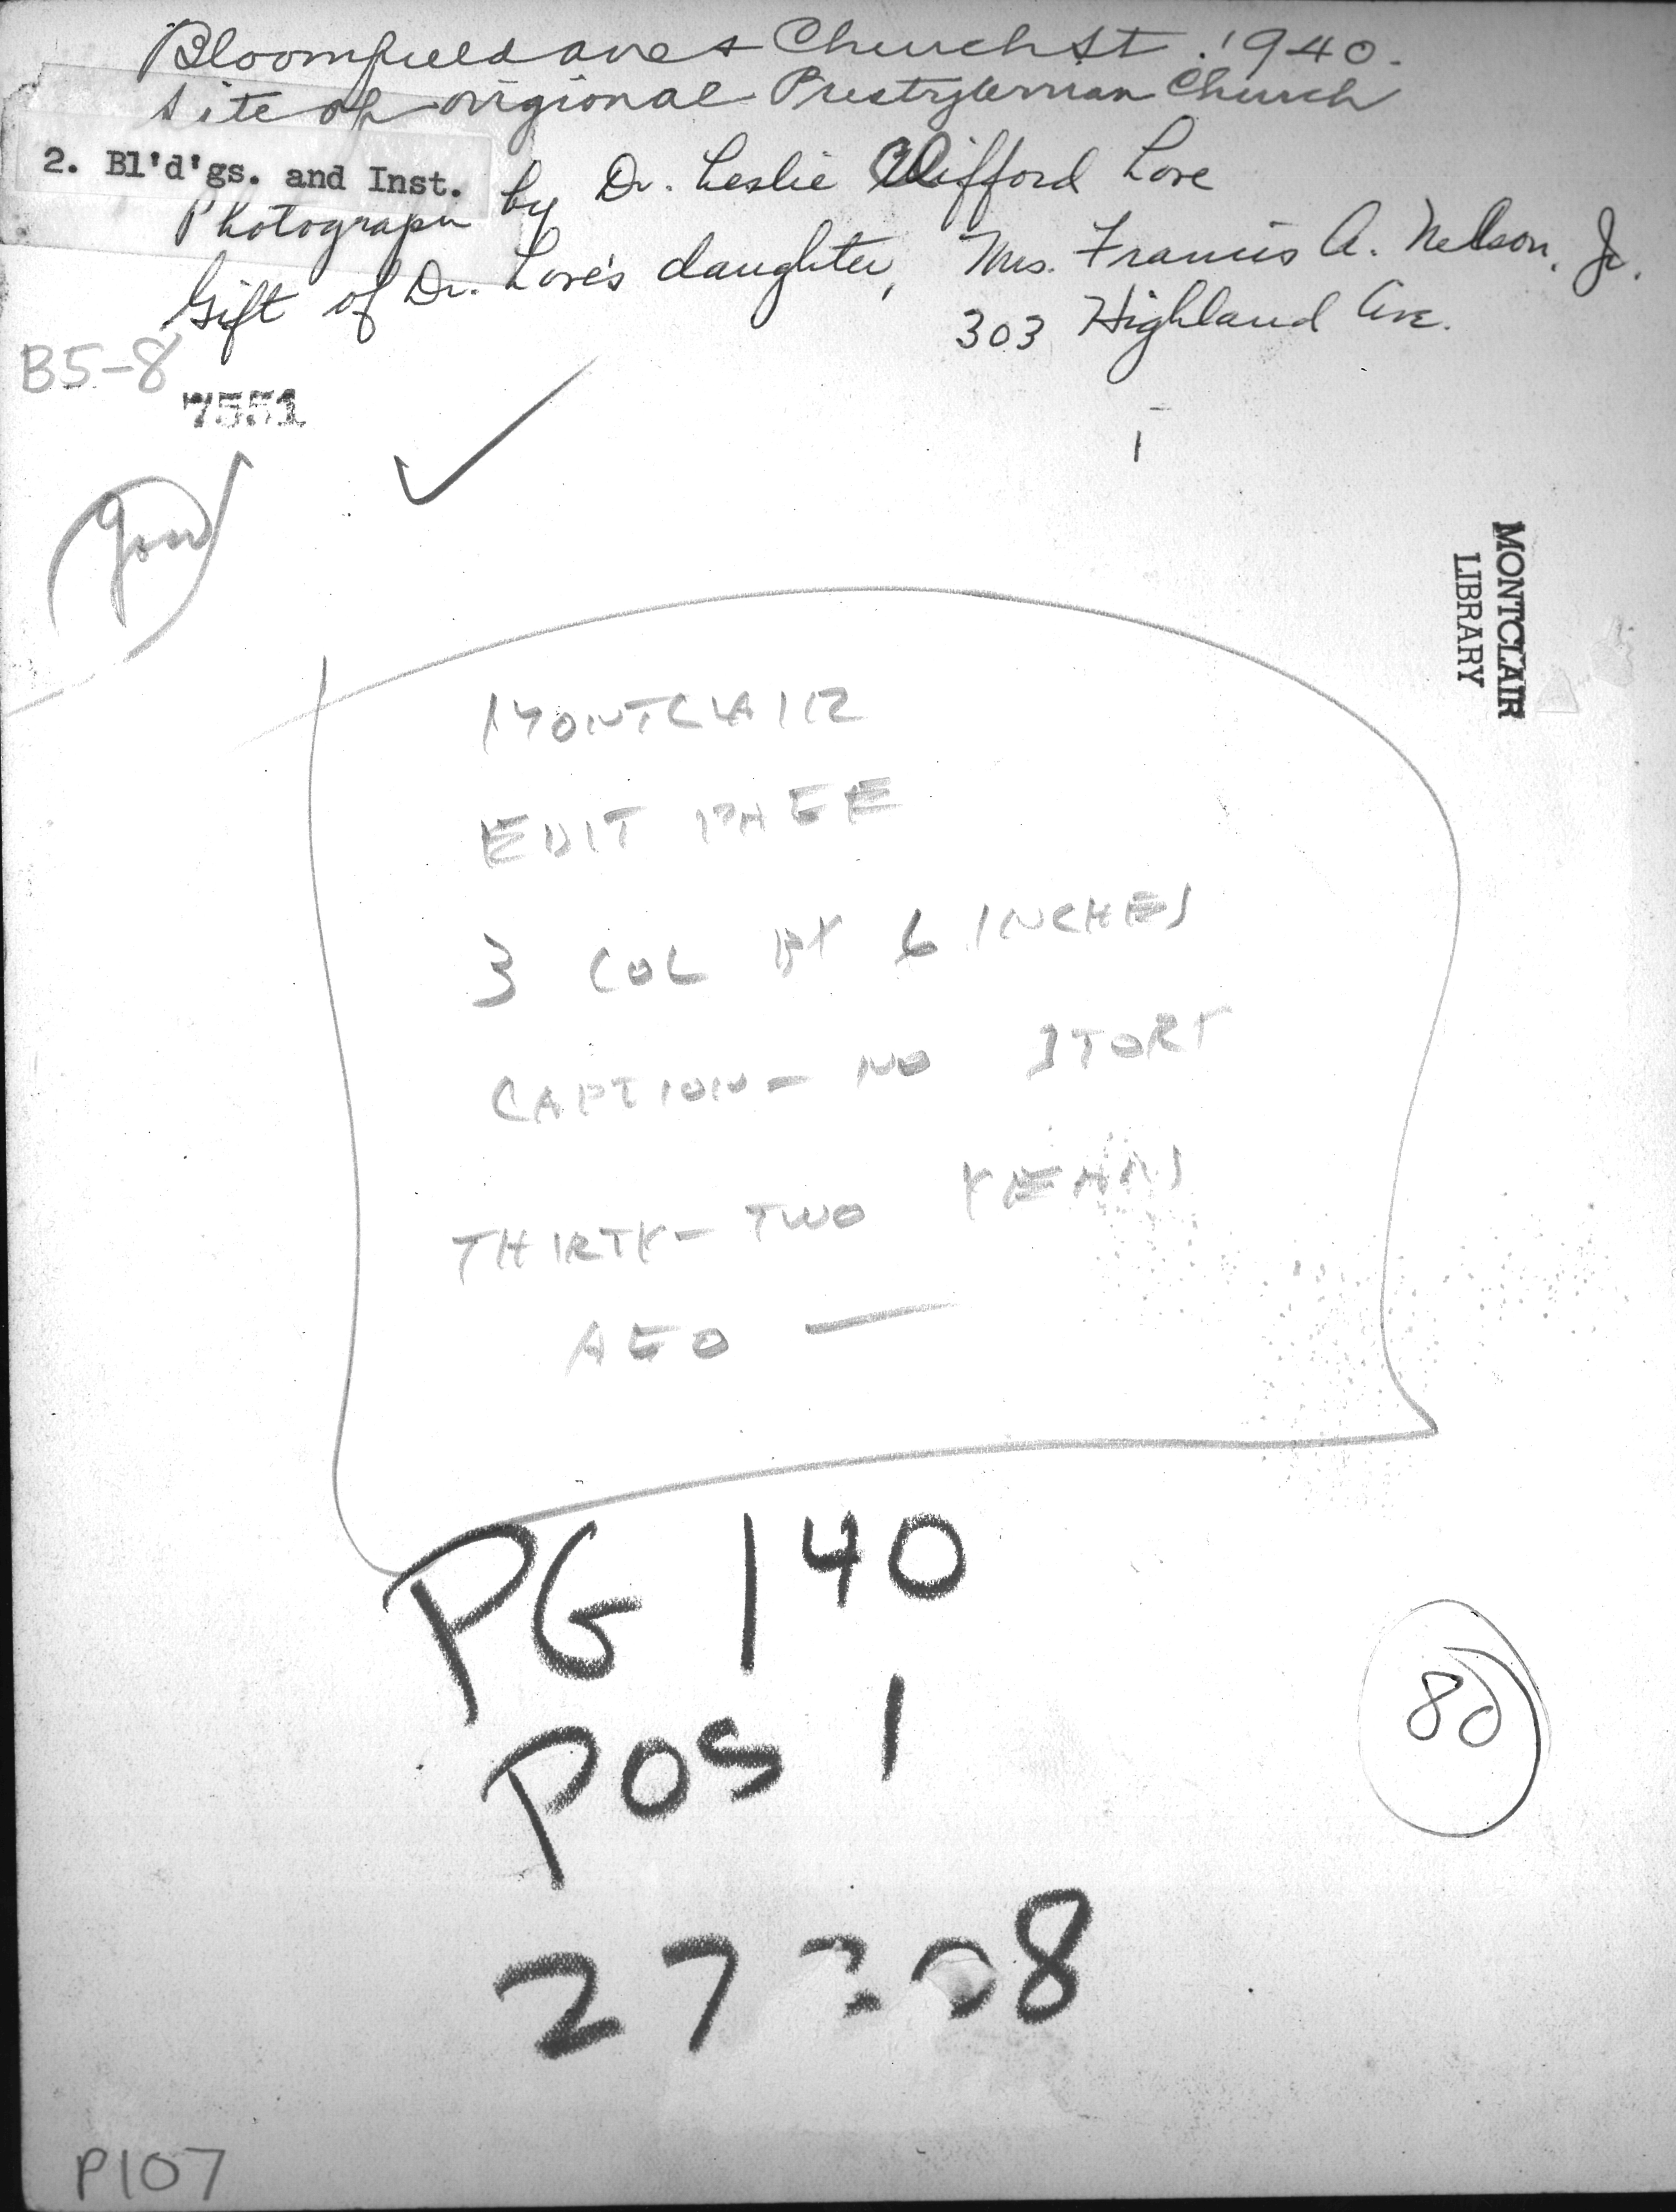 Bloomfield ave & Church St. 1940.
Site of origional Prestyterian Church
2. Bl'd'gs. and Inst.
Photograph by Dr. Leslie Clifford Love
Gift of Dr. Love's daughter, Mrs. Francis A. Nelson, Jr.
303 Highland Ave.
B5-8
7551
good
MONTCLAIR
LIBRARY
MONTCLAIR
EDIT PAGE
3 COL BY 6 INCHES
CAPTION - NO STORY
THIRTY-TWO YEARS
AGO —
PG 140
POS 1
80
P107